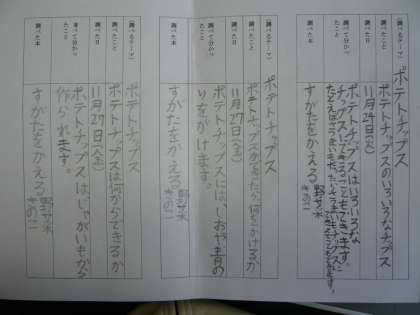 （調べるテーマ）
ポテトチップス
調べたこと
ポテトチップスのいろいろなチップス
調べた日
11月24日(火)
調べて分かったこと
ポテトチップスはいろいろな
チップスにできることもできます。
調べた本
すがたをかえる 野サイ
きのこ
（調べるテーマ）
ポテトチップス
調べたこと
ポテトチップスができたら何をかけるか
調べた日
11月27日(金)
調べて分かったこと
ポテトチップスには、しおや青の
りをかけます。
調べた本
すがたをかえる 野サイ
きのこ
（調べるテーマ）
ポテトチップス
調べたこと
ポテトチップスは何からできるか
調べた日
11月27日(金)
調べて分かったこと
ポテトチップスはじゃがいもから
作られます。
調べた本
すがたをかえる 野サイ
きのこ